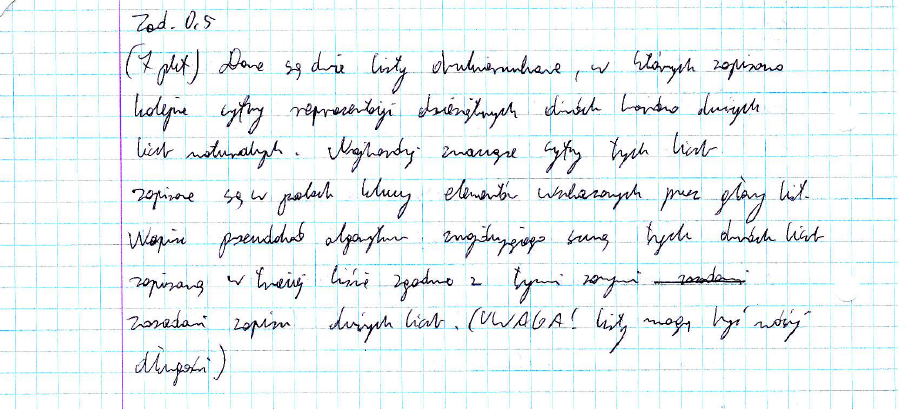 Zad. 0.5
(7 pkt) Dane są dwie listy dwukierunkowe, w których zapisano
kolejne cyfry reprezentacji dziesiętnych dwóch bardzo dużych
liczb naturalnych. Najbardziej znaczące cyfry tych liczb
zapisane są w polach klucz elementów wskazanych przez głowy list.
Napisz pseudokod algorytmu znajdującego sumę tych dwóch liczb
zapisaną w trzeciej liście zgodnie z tymi samymi zasadami
zasadami zapisu dużych liczb. (UWAGA! listy mogą być różnej
długości)